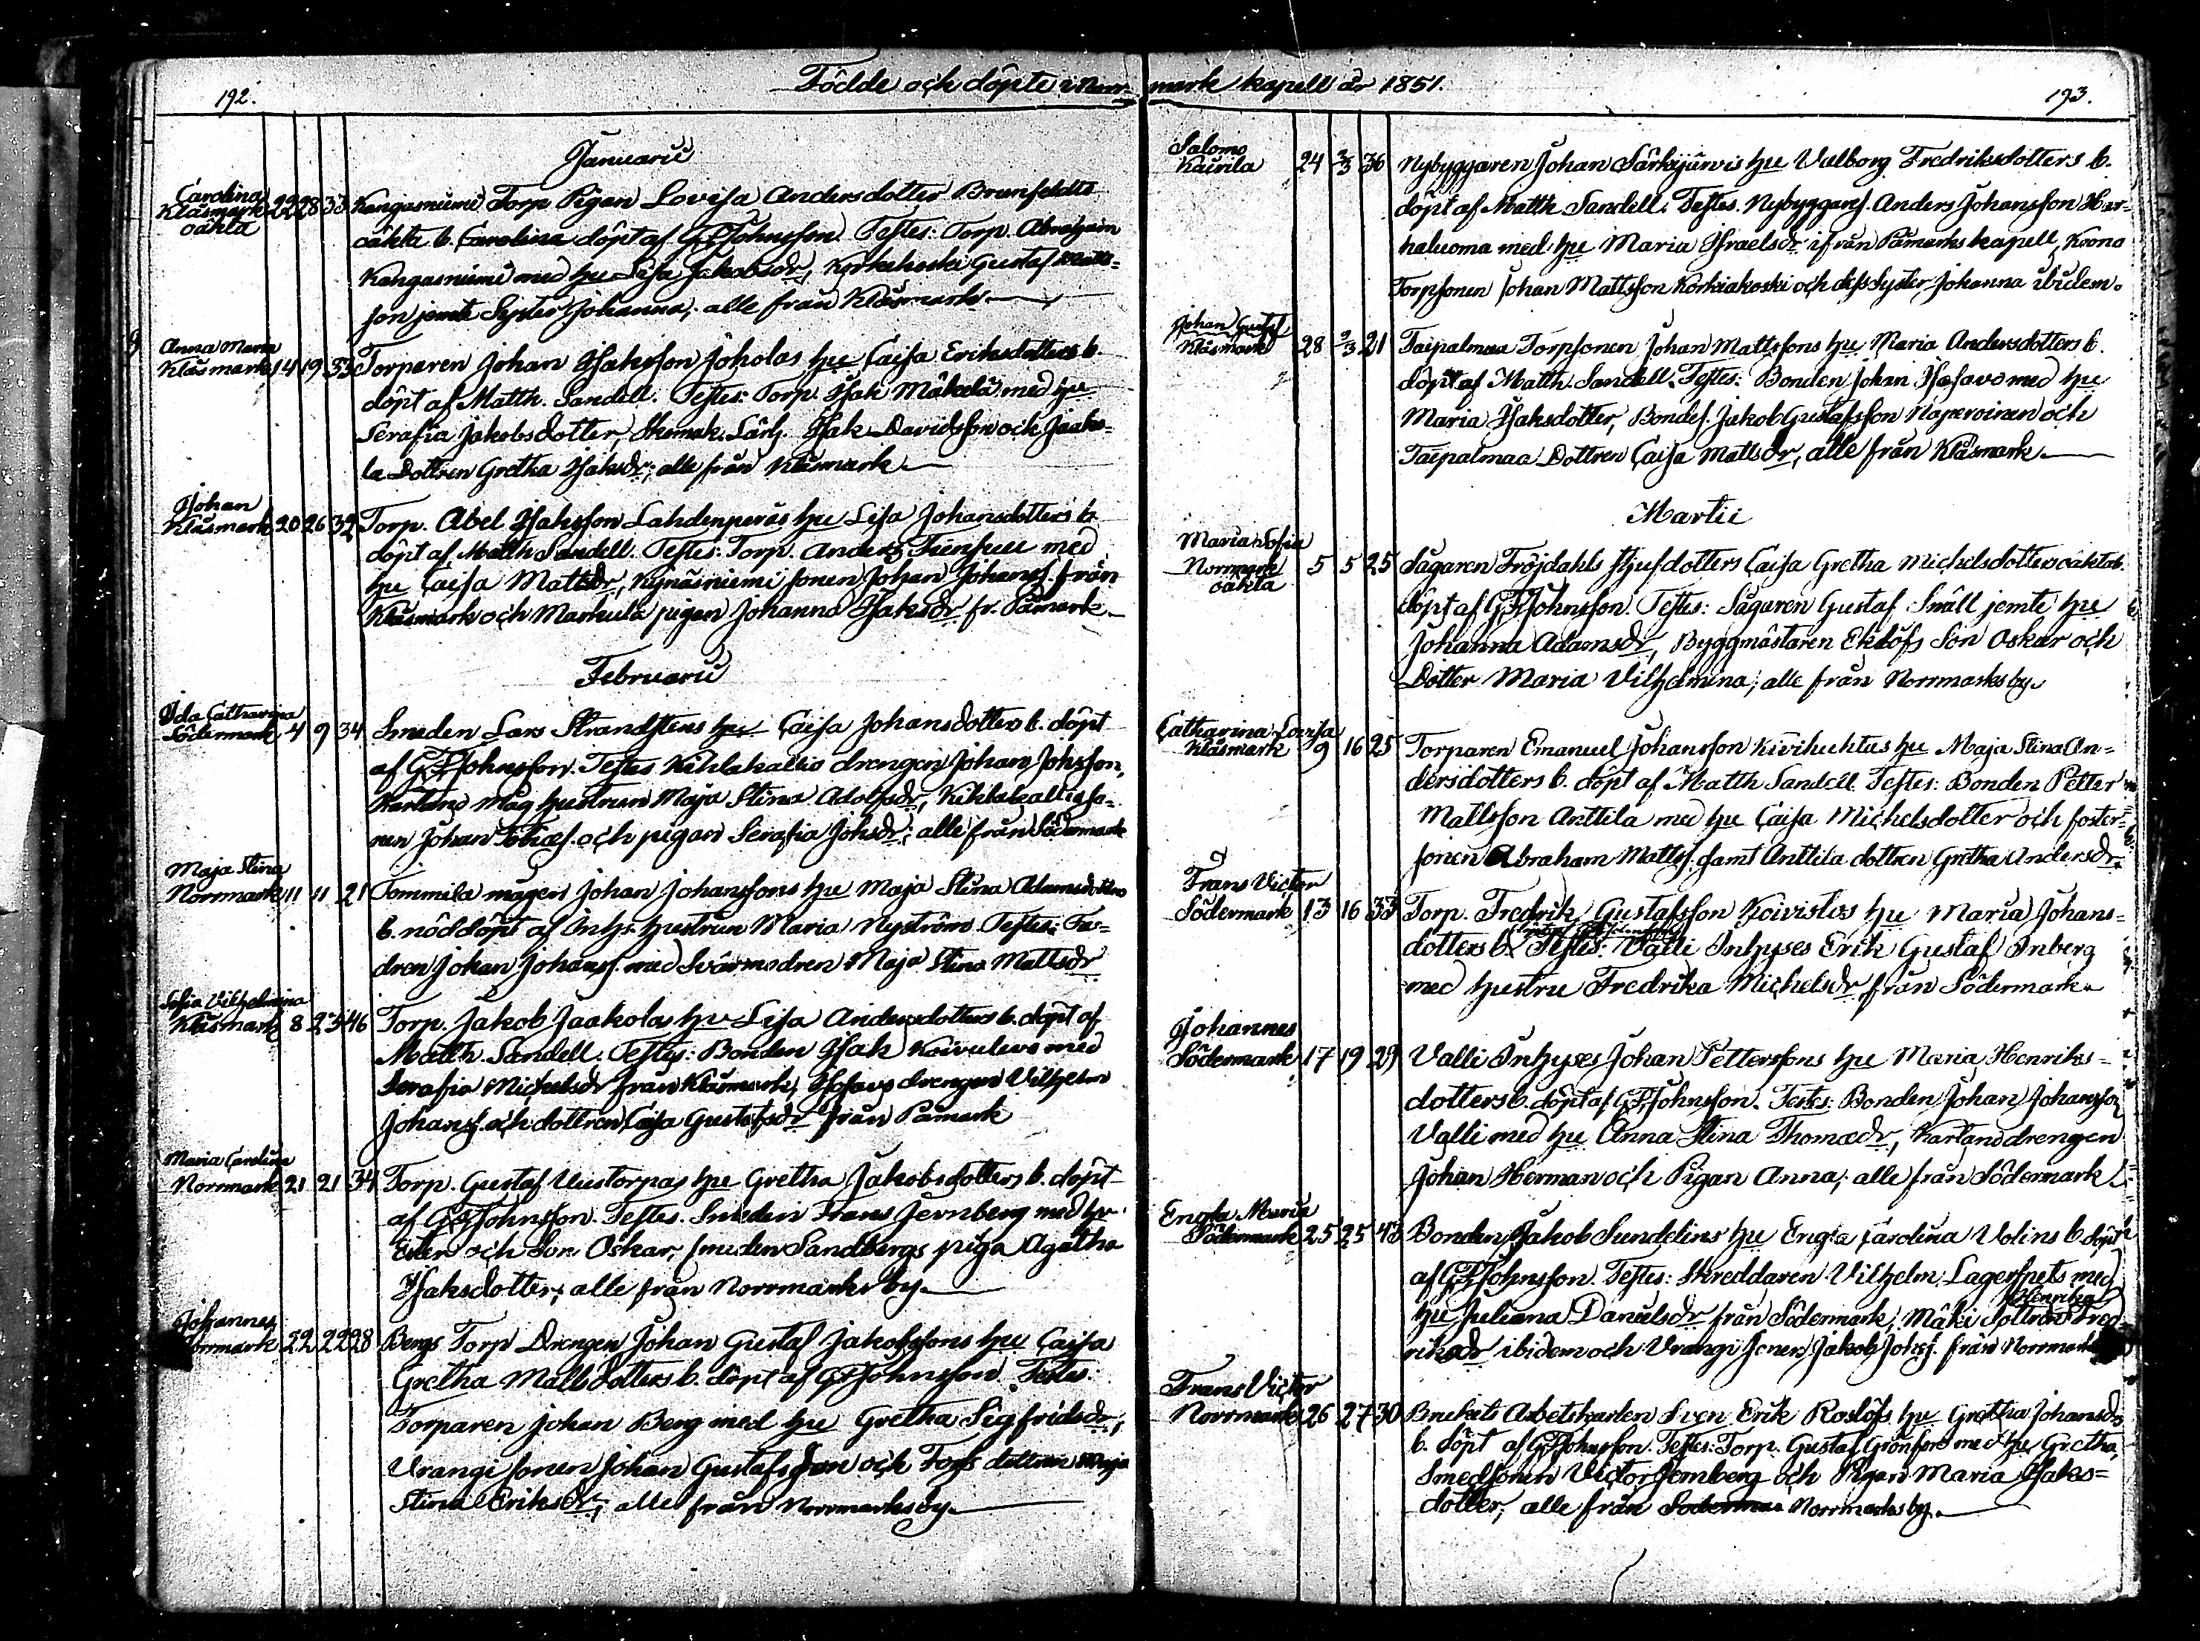 192.
Födde och döpte i Norrmark kapell år 1851.
193.
Januarii
Carolina
Klåsmark 22 28 33
oäkta
Kangasniemi Torp Pigan Lovisa Andersdotter Brunfeldts
oäkta b. Carolina döpt af G F Johnsson. Testes: Torp. Abraham
Kangasniemi med hu Lisa Jakobsdr, Gustaf Matts-
son jemte Syster Johanna, alle från Klåsmark.
Anna Maria
Klåsmark 14 19 33
Torparen Johan Isaksson Joholas hu Caisa Eriksdotters b.
döpt af Matth. Sandell. Testes: Torp. Isak Mäkelä med hu
Serafia Jakobsdotter, Skomak. Lärl. Isak Davidsson och Jaako-
la Dottren Gretha Isaksdr; alle från Klåsmark.
Johan
Klåsmark 20 26 32
Torp. Abel Isaksson Lahdenperäs hu Lisa Johansdotters b.
döpt af Matth Sandell. Testes: Torp. Anders med
hu Caisa Mattsdr, Kynäsniemi sonen Johan Johanss. från
Klåsmark och Markula pigan Johanna Isaksdr fr. Påmark.
Februarii
Ida Catharina
Södermark 4 9 34
Smeden Lars Strandstens hu Caisa Johansdotters b. döpt
af G F Johnsson. Testes Kihlakallio drengen Johan Johsson,
Karland måg hustrun Maja Stina Adolfsdr, Kihlakallio so-
nen Johan och pigan Serafia Johsdr; alle från Södermark
Maja Stina
Norrmark 11 11 21
Tommila mågen Johan Johanssons hu Maja Stina Adamsdotters
b. nöddöpt af Inhs. hustrun Maria Nyström. Testes: Fa-
dren Johan Johanss. med Svärmodren Maja Stina Mattsdr
Sofia Vilhelmina
Klåsmark 8 23 46
Torp. Jakob Jaakolas hu Lisa Andersdotters b. döpt af
Matth. Sandell. Testes: Bonden Isak Koivulevo med
Serafia Michelsdr från Klåsmark, Isosavo drengen Vilhelm
Johanss. och dottren Caisa Gustafsdr från Påmark
Maria Carolina
Norrmark 21 21 34
Torp. Gustaf Uustorpas hu Gretha Jakobsdotters b. döpt
af G F Johnsson. Testes. Smeden Frans Jernberg med hu
Ester och Son Oskar, smeden Sandbergs piga Agatha
Isaksdotter; alle från Norrmarks by.
Johannes
Norrmark 22 22 28
Bergs Torp Drengen Johan Gustaf Jakobssons hu Caisa
Gretha Mattsdotters b. döpt af G F Johnsson. Testes:
Torparen Johan Berg med hu Gretha Sigfridsdr,
Vrangi sonen Johan Gustafsson och Fors dottren Maja
Stina Eriksdr; alle från Norrmarks by.
Salomo
Kairila 24 2/3 36
Nybyggaren Johan Särkijärvis hu Valborg Fredriksdotters b.
döpt af Matth Sandell. Testes. Nybyggares. Anders Johansson Har-
haluoma med hu Maria Israelsdr ifrån Påmarks kapell, Krono
Torpsonen Johan Mattsson Korkiakoski och dess Syster Johanna ibidem.
Johan Gustaf
Klåsmark 28 2/3 21
Taipalmaa Torpsonen Johan Mattssons hu Maria Andersdotters b.
döpt af Matth. Sandell. Testes: Bonden Johan Isosavo med hu
Maria Isaksdotter, Bondes. Jakob Gustafsson Naperoinen och
Taipalmaa Dottren Caisa Mattsdr, alle från Klåsmark.
Martii
Maria Sofia
Norrmark 5 5 25
oäkta
Sågaren Fröjdahls Stjufdotters Caisa Gretha Michelsdotters oäkta b.
döpt af G F Johnsson. Testes: Sågaren Gustaf Snäll jemte hu
Johanna Adamsdr, Byggmästaren Eklöfs Son Oskar och
Dotter Maria Vilhelmina; alle från Norrmarks by.
Catharina Lovisa
Klåsmark 9 16 25
Torparen Emanuel Johansson Kivihuhtas hu Maja Stina An-
dersdotters b. döpt af Matth Sandell. Testes: Bonden Petter
Mattsson Anttila med hu Caisa Michelsdotter och foster-
sonen Abraham Mattss. samt Anttila dottren Gretha Andersdr.
Frans Victor
Södermark 13 16 33
Torp. Fredrik Gustafsson Koivistos hu Maria Johans-
dotters b. Testes: Valli Inhyses Erik Gustaf Inberg
med hustru Fredrika Michelsdr från Södermark.
Johannes
Södermark 17 19 29
Valli Inhyses Johan Petterssons hu Maria Henriks-
dotters b. döpt af G F Johnsson. Testes: Bonden Johan Johansson
Valli med hu Anna Stina Thomædr, Karland drengen
Johan Herman och Pigan Anna; alle från Södermark
Engla Maria
Södermark 25 25 43
Bonden Jakob Sundelins hu Engla Carolina Volins b. döpt
af G F Johnsson. Testes: Skreddaren Vilhelm Lagerspets med
hu Juliana Danielsdr från Södermark, Mäki Dottren Henrika Fred-
riksdr ibidem och Vrangi sonen Jakob Johss. från Norrmark
Frans Victor
Norrmark 26 27 30
Bruksets Arbetskarlen Sven Erik Roslöfs hu Gretha Johansdr
b. döpt af G F Johnsson. Testes: Torp. Gustaf Grönfors med hu Gretha,
Smedsonen Victor Jernberg och Pigan Maria Isaks-
dotter, alle från Norrmarks by.